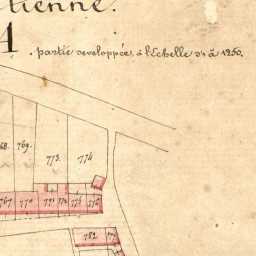 tienne.
1
partie developpée à l'Echelle d. à 1250.
68. 769. 773. 774
767 770 771 772 775 776
782